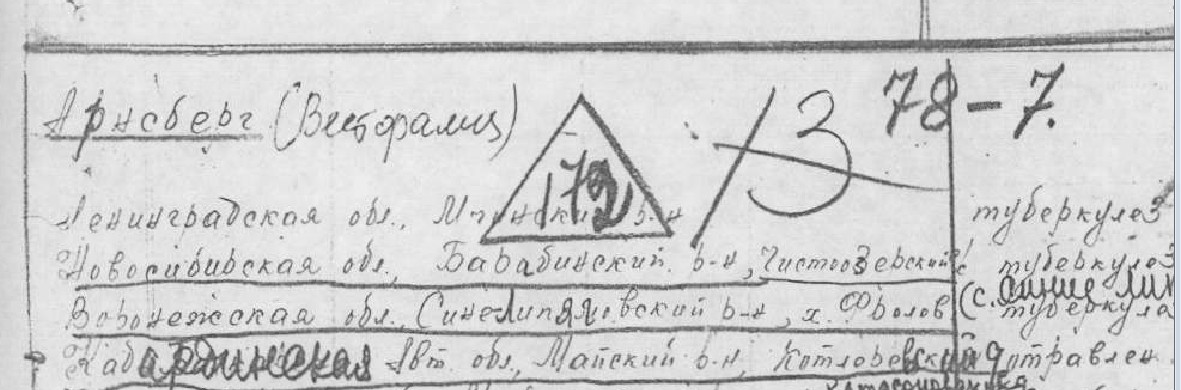 78-7.
Арнсберг (Вестфалия)
173 13
Ленинградская обл., Мгинский р-н туберкулез
Новосибирская обл., Барабинский р-н, Чистоозерский туберкулез
(с. Синие Лип
Воронежская обл., Синелипяговский р-н, х. Фролов туберкула
Кабардинская Авт. обл., Майский р-н, Котляревский отравлен